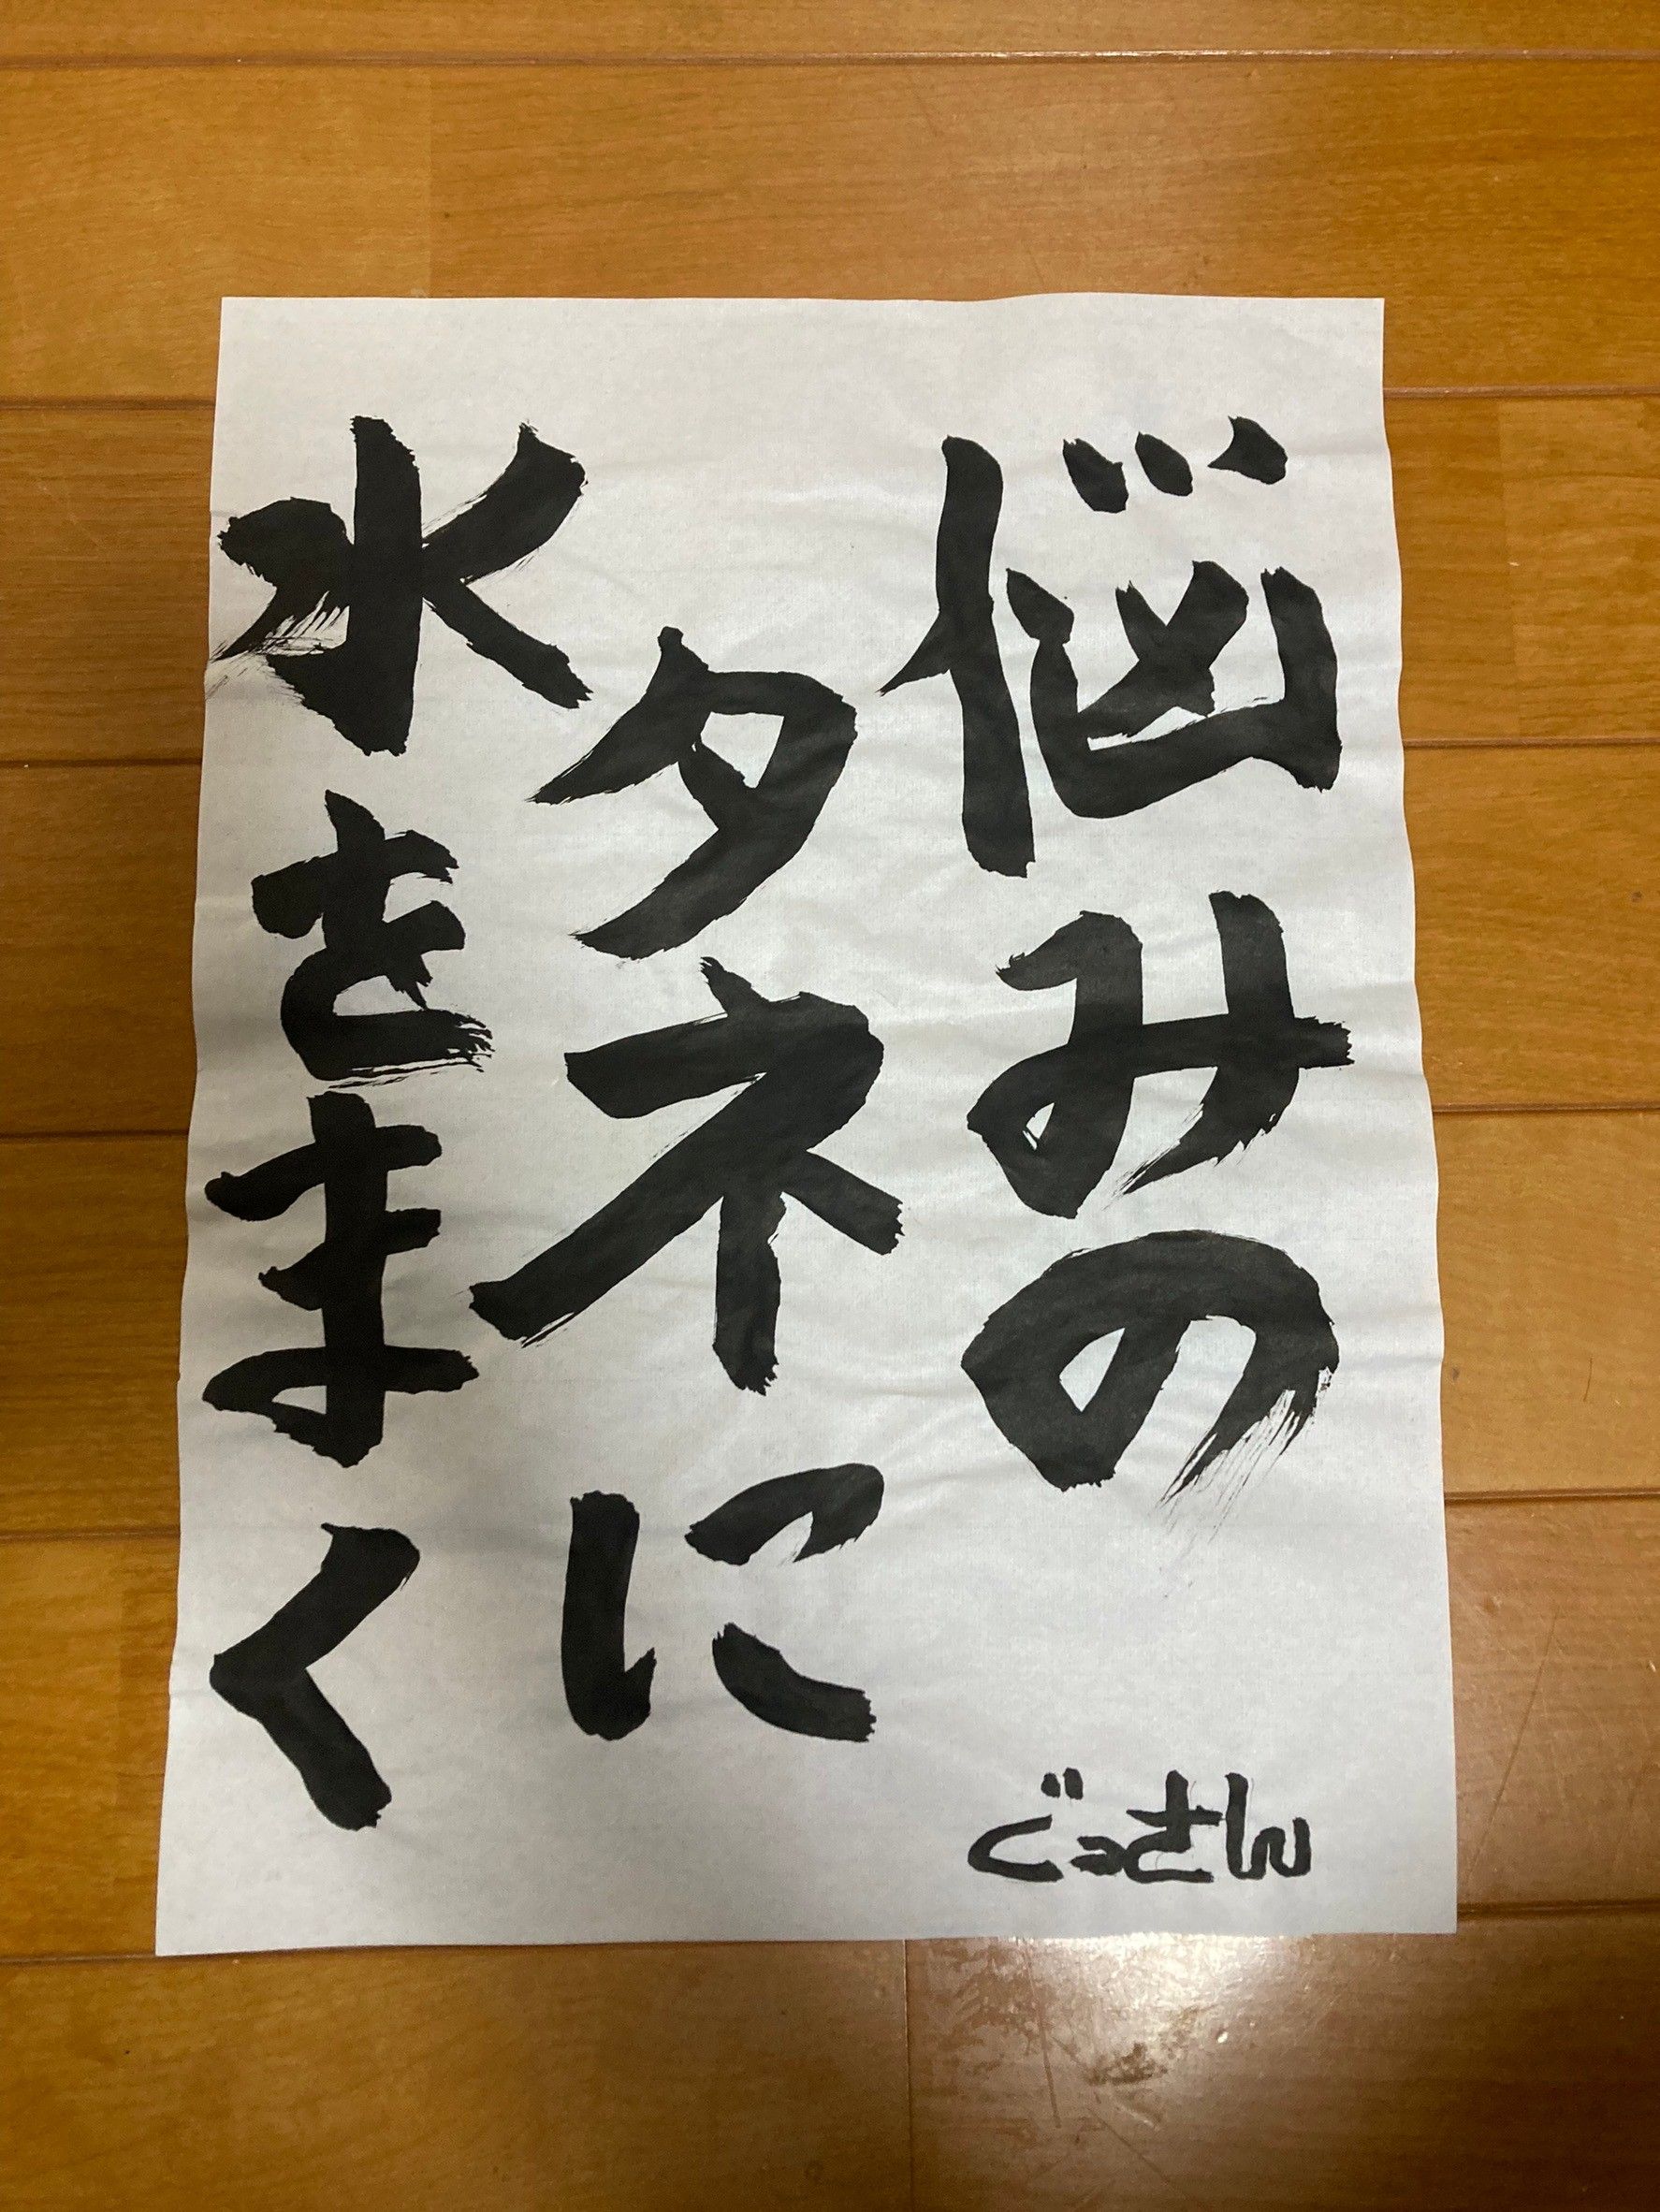 悩みの
タネに
水をまく
ぐっさん